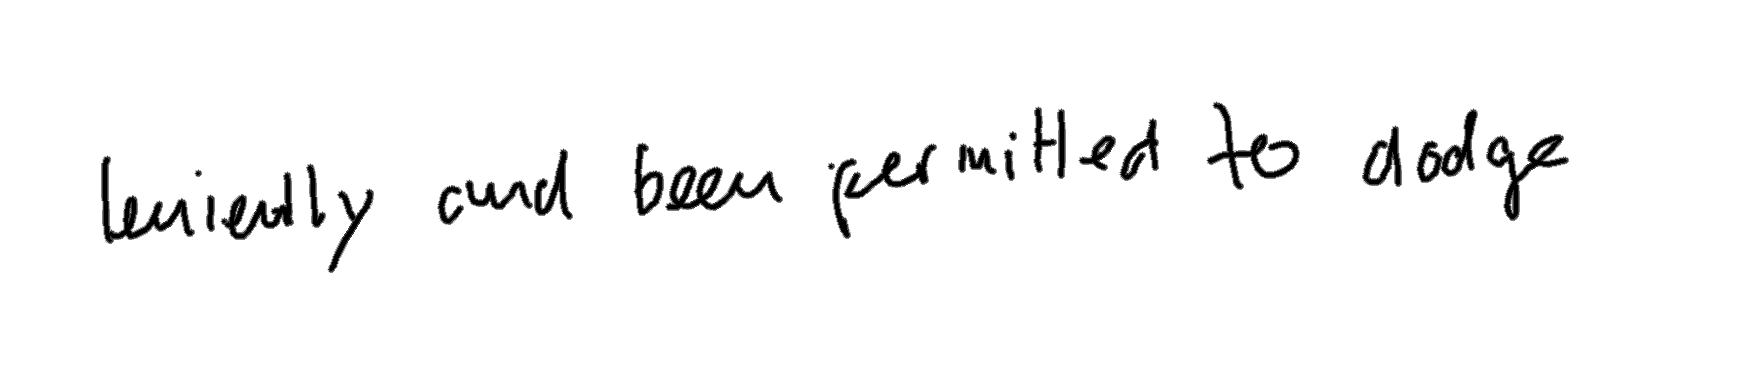 leniently and been permitted to dodge